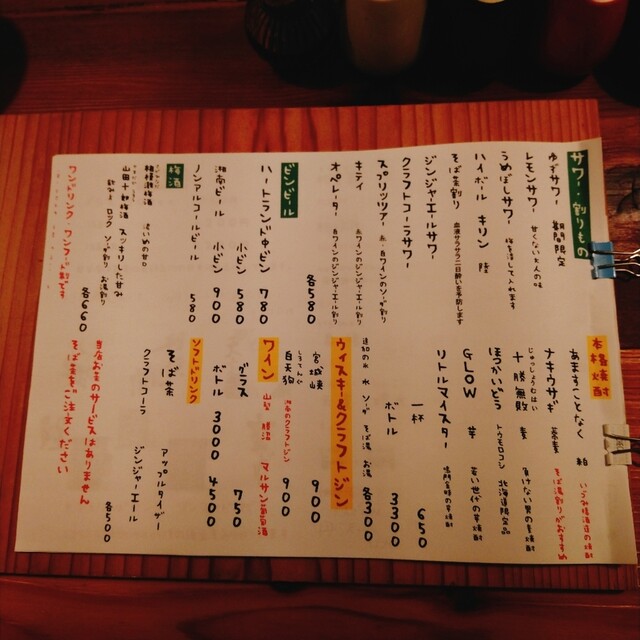 サワー・割りもの
ゆずサワー 期間限定
レモンサワー 甘くない大人の味
うめぼしサワー 梅を浸して入れます
ハイボール キリン 陸
そば茶割り 血液サラサラ二日酔いを予防します
ジンジャーエールサワー
クラフトコーラサワー
スプリッツァー 赤・白ワインのソーダ割り
キティ 赤ワインのジンジャーエール割り
オペレーター 白ワインのジンジャーエール割り
各580
ビンビール
ハートランド中ビン 780
小ビン 580
湘南ビール 小ビン 900
ノンアルコールビール 580
梅酒
相模灘梅酒 濃いめの甘口
山田十郎梅酒 スッキリした甘み
飲み方 ロック ソーダ割り お湯割り
各660
ワンドリンク ワンフード制です
本格焼酎
あますことなく 粕 いづみ橋酒造の焼酎
ナキウサギ 蕎麦 そば湯割りがおすすめ
じゅっしょうむはい
十勝無敗 麦 負けない男の麦焼酎
ほっかいどう トウモロコシ 北海道限定品
GLOW 芋 若い世代の芋焼酎
リトルマイスター 鳴門金時の芋焼酎
一杯 650
ボトル 3300
水 ソーダ そば湯 お湯 各300
ウィスキー&クラフトジン
宮城峡 900
しろてんぐ
白天狗 湘南のクラフトジン 900
ワイン
山梨 勝沼 マルサン葡萄酒
グラス 750
ボトル 3000 4500
ソフトドリンク
そば茶 アップルタイザー
クラフトコーラ ジンジャーエール
各500
当店お水のサービスはありません
そば茶をご注文ください